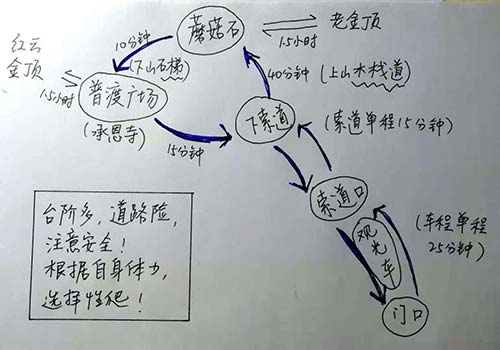 蘑菇石
老金顶
1.5小时
10分钟
(下山石梯)
红云
金顶
1.5小时
普渡广场
(承恩寺)
15分钟
下索道
40分钟
(上山木栈道)
(索道单程15分钟)
索道口
观光车
(车程单程
25分钟)
门口
台阶多，道路险，
注意安全！
根据自身体力，
选择性爬！